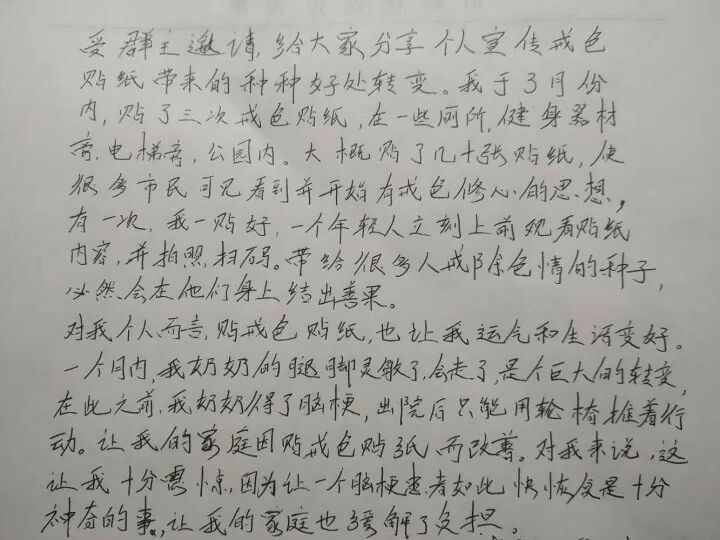 受群主邀请，给大家分享个人宣传戒色
贴纸带来的种种好处转变。我于3月份
内，贴了三次戒色贴纸，在一些厕所，健身器材
旁，电梯旁，公园内。大概贴了几十张贴纸，使
很多市民可见看到并开始有戒色修心的思想，
有一次，我一贴好，一个年轻人立刻上前观看贴纸
内容，并拍照，扫码。带给很多人戒除色情的种子，
必然会在他们身上结出善果。
对我个人而言，贴戒色贴纸，也让我运气和生活变好。
一个月内，我奶奶的腿脚灵敏了，会走了，是个巨大的转变，
在此之前，我奶奶得了脑梗，出院后只能用轮椅推着行
动。让我的家庭因贴戒色贴纸而改善。对我来说，这
让我十分震惊，因为让一个脑梗患者如此快恢复是十分
神奇的事，让我的家庭也缓解了负担。